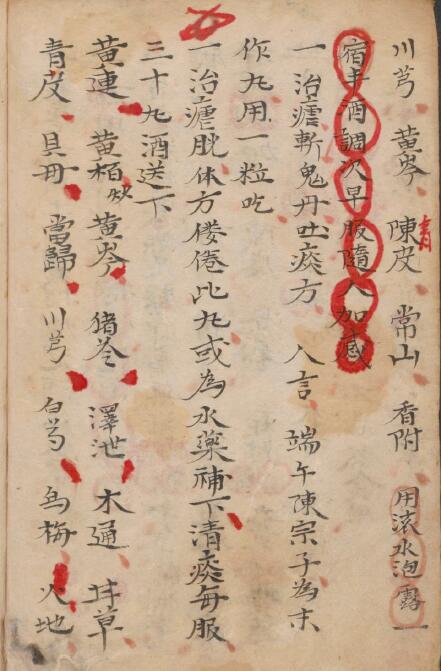 川芎 黃岑 陳皮 青 常山 香附 用滚水泡露一
宿半酒調次早服隨人加减
一治瘧斬鬼丹吐痰方 人言 端午陳宗子為末
作九用一粒吃
一治瘧脫体方倦此九或為水藥補下清痰每服
三十九酒送下
黃連 黃栢 黃岑 猪苓 澤泄 木通 甘草
青皮 貝毋 當歸 川芎 白芍 烏梅 火地